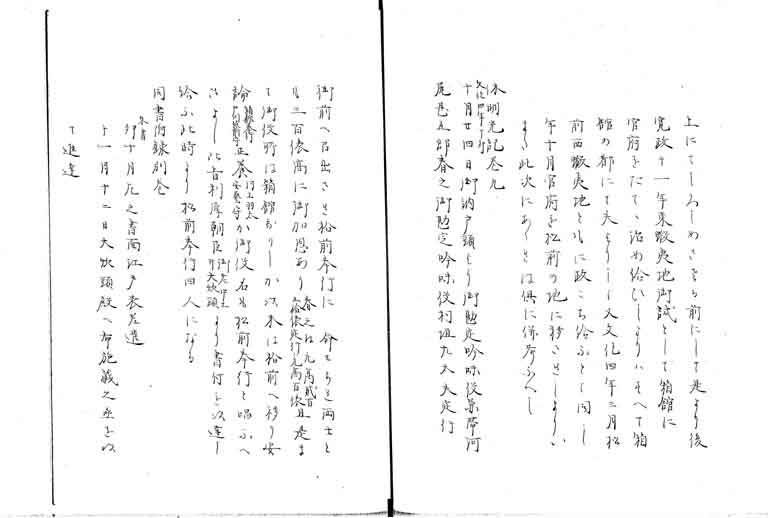 上にてしろしめさるゝ前にして是より後
寛政十一年東蝦夷地御試として箱館に
官府をたてゝ治め給ひしよりハすへて箱
館の都にて夫より又文化四年三月松
前西蝦夷地ともに政こち給ふとて同し
年十月官府を松前の地に移させしよりハ
また此次にあくれは倶に併考ふへし
休明光記巻九
文化四年
十月廿四日御納戸頭より御勘定吟味役
尾甚五郎春之御勘定吟味役村垣九太夫定行
御前へ召出され松前奉行に 命せらる両士と
も三百俵高に御加恩あり 春之は元高貳百
俵定行元高百俵 且是ま
て御役所は箱館なりしか以来は松前へ移り安
論 正養 か御役名も松前奉行と唱ふへ
きよし 此旨利厚朝臣 より書付を以達し
給ふ此時より松前奉行四人になる
同書附録別巻
朱書
卯十月 之書面江戸表差遣
十一月十二日大炊頭殿へ布施蔵之丞を以
て進達